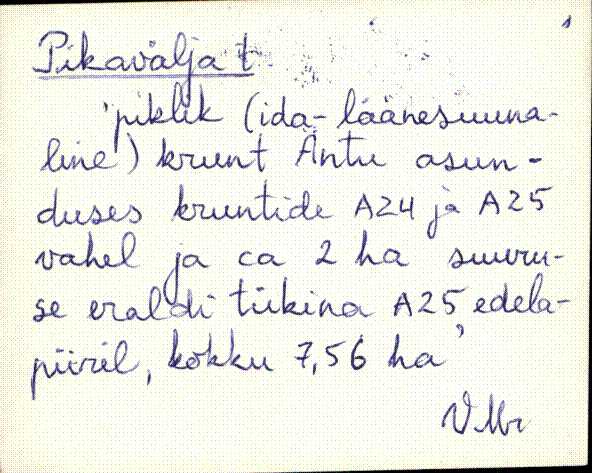 1
Pikavälja t
'piklik (ida-läänesuuna-
line) krunt Äntu asun-
duses kruntide A24 ja A25
vahel ja ca 2 ha suuru-
se eraldi tükina A25 edela-
piiril, kokku 7,56 ha'
VMr